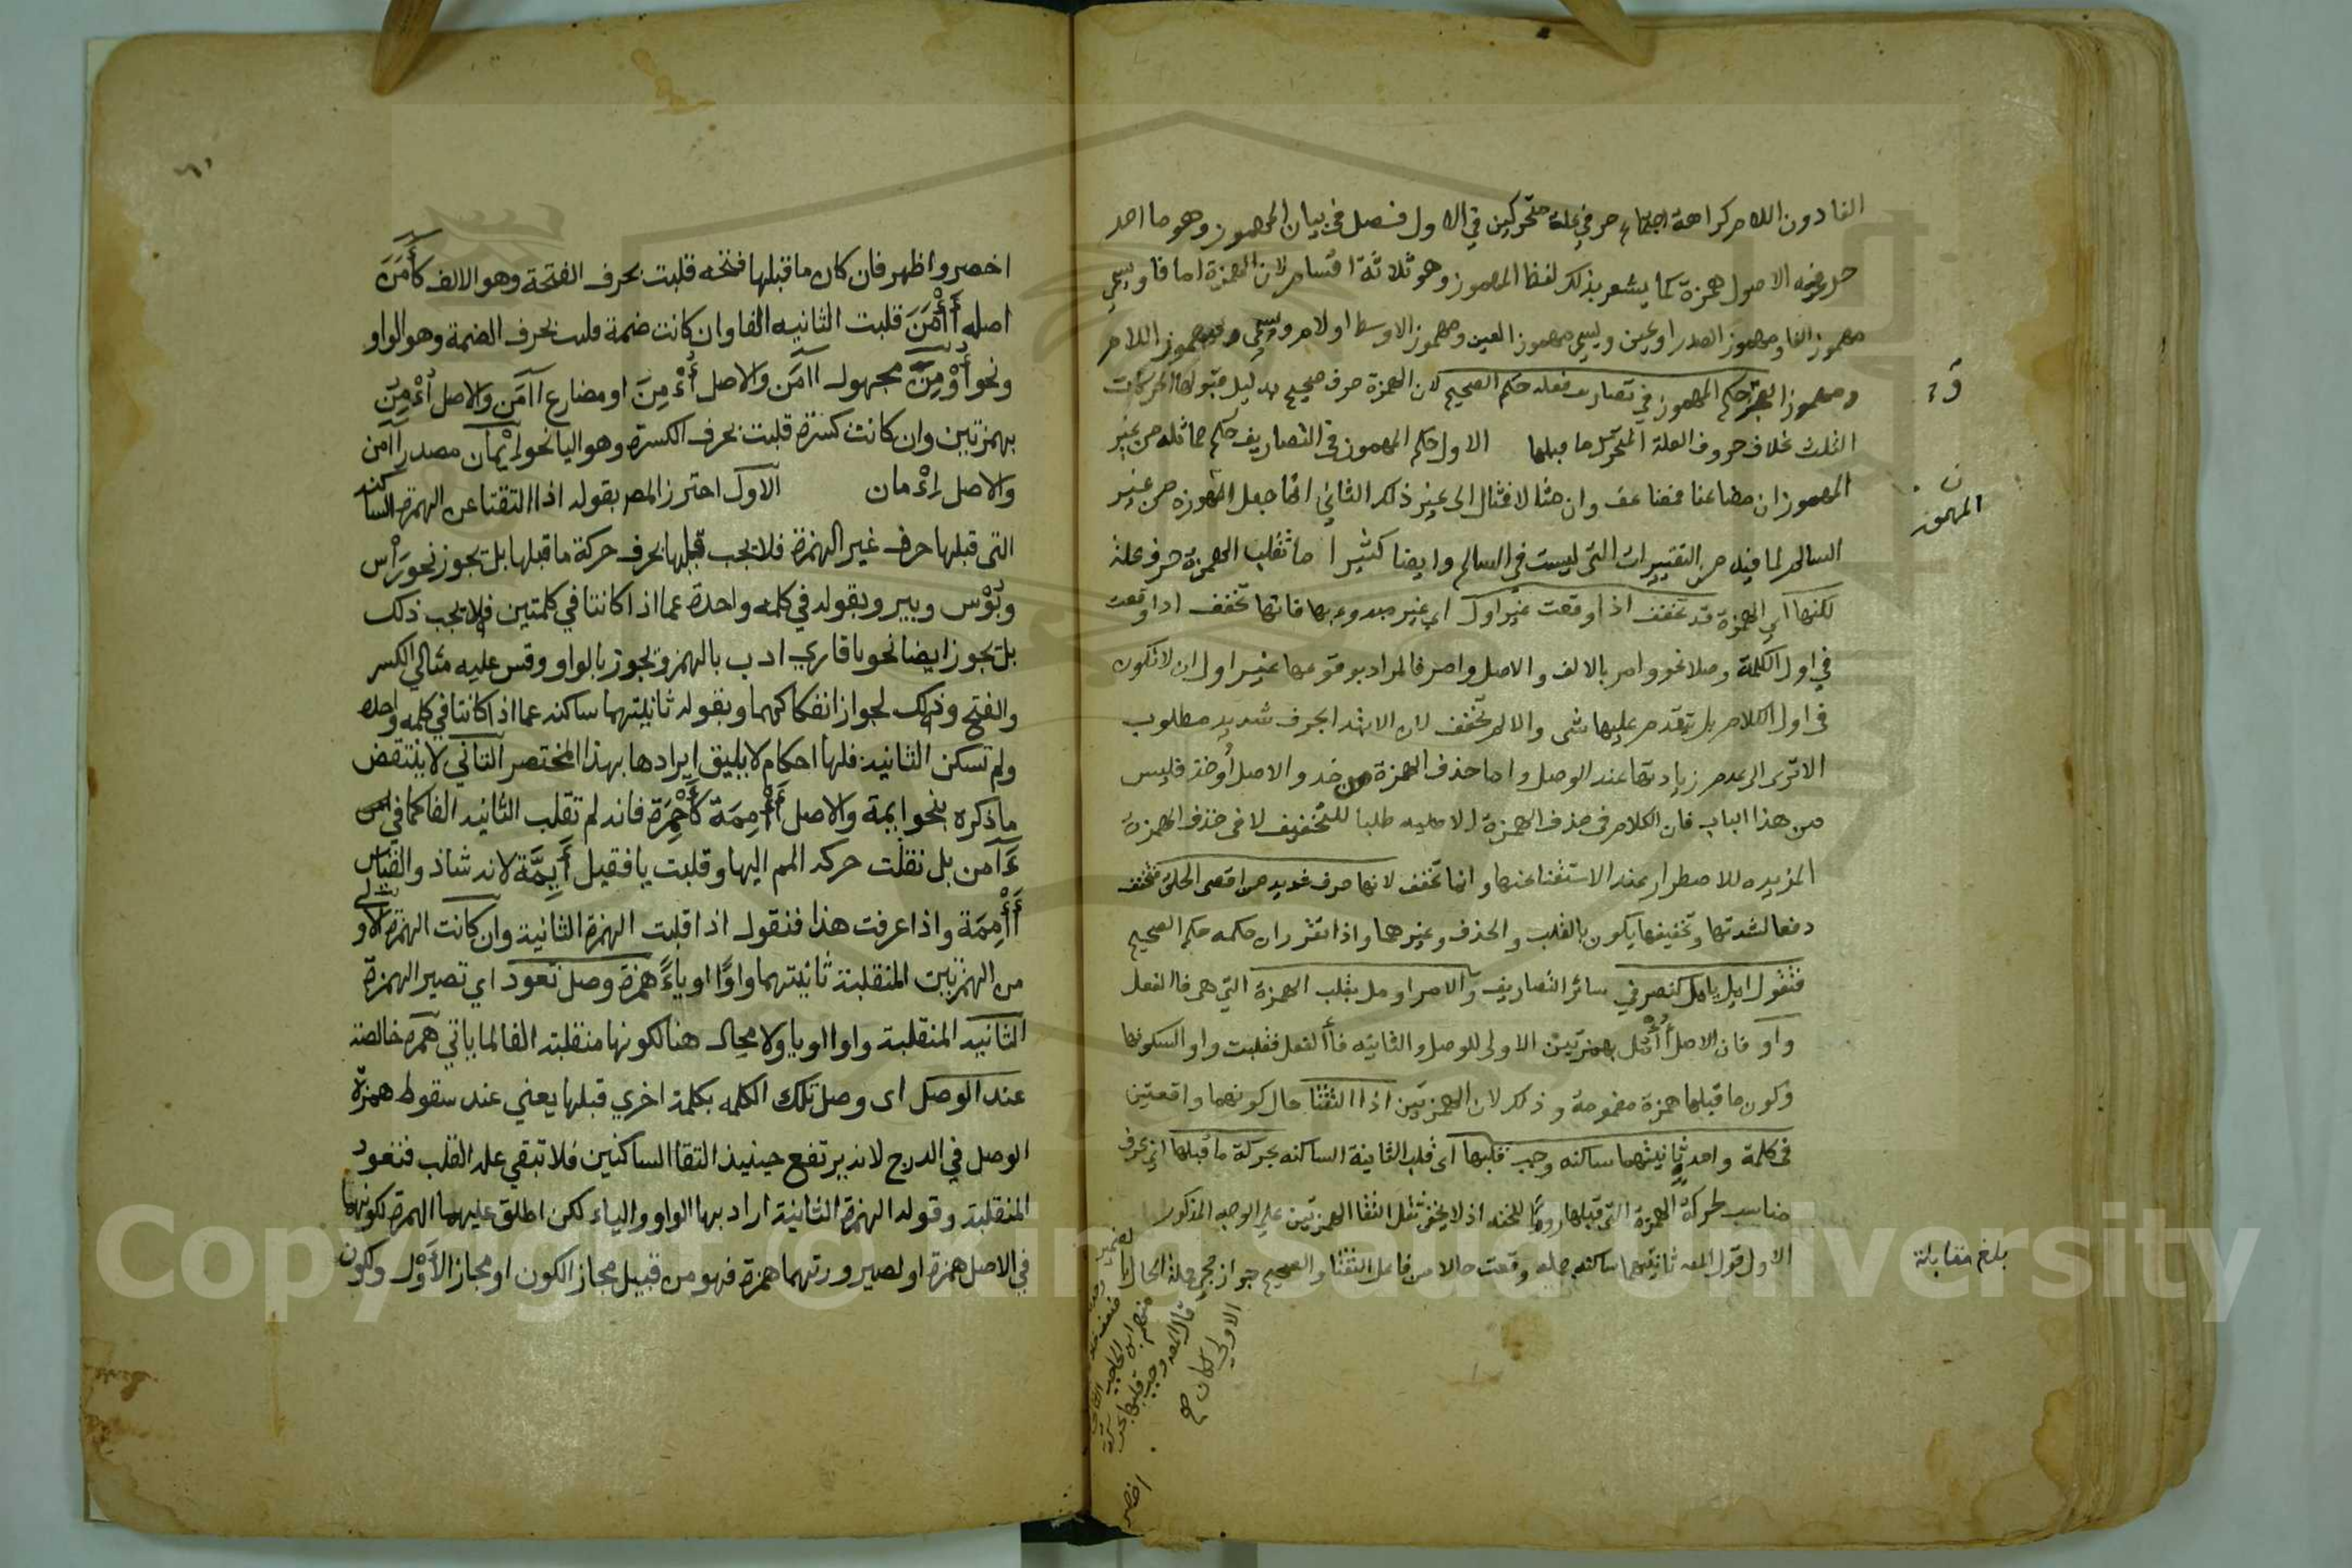 الفا دون اللام كراهة اجتماع حرفي علة متحركين في الاول فصل في بيان المهموز وهو ما احد
حروفه الاصول همزة كما يشعر بذلك لفظ المهموز وهو ثلاثة اقسام لان الهمزة اما فا ويسمى
مهموز الفا ومهموز الصدر او عين ويسمى مهموز العين ومهموز الاوسط او لام ويسمى مهموز اللام
ومهموز العجز حكم المهموز في تصاريف فعله حكم الصحيح لان الهمزة حرف صحيح بدليل قبولها الحركات
الثلث بخلاف حروف العلة المتحرك ما قبلها الاول حكم المهموز في التصاريف حكم مماثله من غير
المهموز ان مضاعفا فمضاعف وان مثالا فمثال الى غير ذلك الثاني انما جعل المهموز من غير
السالم لما فيه من التغييرات التي ليست في السالم وايضا كثيرا ما تقلب الهمزة حرف علة
لكنها اي الهمزة قد تخفف اذا وقعت غير اول اي غير مبدوء بها فانها تخفف اذا وقعت
في اول الكلمة وصلا نحو وامر بالالف والاصل وامر فالمراد بوقوعها غير اول ان لا تكون
في اول الكلام بل تقدم عليها شي والا لم تخفف لان الابتدا بحرف شديد مطلوب
الا ترى الى عدم زيادتها عند الوصل واما حذف الهمزة من خذ والاصل أؤخذ فليس
من هذا الباب فان الكلام في حذف الهمزة الاصلية طلبا للتخفيف لا في حذف الهمزة
المزيده للاضطرار بعند الاستغنا عنها وانما تخفف لانها حرف شديد من اقصى الحلق فتخفف
دفعا لشدتها وتخفيفها يكون بالقلب والحذف وغيرهما واذا تقرر ان حكمه حكم الصحيح
فتقول امل يامل كنصر في سائر التصاريف والامر اومل بقلب الهمزة التي هي فا الفعل
واو فان الاصل أُأْمُل بهمزتين الاولى للوصل والثانيه فأ الفعل فقلبت واوا لسكونها
وكون ما قبلها همزة مضمومة وذلك لان الهمزتين اذا التقتا حال كونهما واقعتين
في كلمة واحدة ثانيتهما ساكنه وجب قلبها اي قلب الثانية الساكنه بحركة ما قبلها اي بحرف
مناسب لحركة الهمزة التي قبلها روما للخفه اذ لا يخفى ثقل التقا الهمزتين على الوجه المذكور
الاول قول المصـ ثانيتهما ساكنه جمله وقعت حالا من فاعل التقتا والصحيح جواز مجي جملة الحال
قال المصـ وجب قلبها
الاولى كان صح
اخصر
ن
المهموز
بلغ مقابلة
اخصر واظهر فان كان ما قبلها فتحه قلبت بحرف الفتحة وهو الالف كأَمَنَ
اصله أَأْمَنَ قلبت الثانيه الفا وان كانت ضمة قلبت بحرف الضمة وهو الواو
ونحو أُوْمِنَ مجهول اامَن والاصل أُءْمِنَ او مضارع اامَن والاصل أُءْمِن
بهمزتين وان كانت كسرة قلبت بحرف الكسرة وهو اليا نحو اِيْمان مصدر اامن
والاصل اِءْمان الاول احترز المصـ بقوله اذا التقتا عن الهمزة الساكنه
التي قبلها حرف غير الهمزة فلا يجب قلبها بحرف حركة ما قبلها بل تجوز نحو رَأْس
وبُؤْس وبير وبقوله في كلمه واحدة عما اذا كانتا في كلمتين فلا يجب ذلك
بل يجوز ايضا نحو يا قاري ادب بالهمز ويجوز بالواو وقس عليه مثالي الكسر
والفتح وذلك لجواز انفكاكهما وبقوله ثانيتهما ساكنه عما اذا كانتا في كلمه واحده
ولم تسكن الثانيه فلها احكام لا يليق ايرادها بهذا المختصر الثاني لا ينتقض
ما ذكره بنحو ايمة والاصل أَأْمِمَة كَأَحْمِرَة فانه لم تقلب الثانيه الفا كما في
ءَاَمن بل نقلت حركه الميم اليها وقلبت يا فقيل أَيِمَّة لانه شاذ والقياس
أَأْمِمَة واذا عرفت هذا فنقول اذا قلبت الهمزة الثانية وان كانت الهمزة الاولى
من الهمزتين المنقلبة ثانيتهما واوًا او ياءً همزة وصل تعود اي تصير الهمزة
الثانيه المنقلبة واوا او يا ولا محال هنا لكونها منقلبة الفا لما ياتي همزة خالصة
عند الوصل اى وصل تلك الكلمه بكلمة اخري قبلها يعني عند سقوط همزة
الوصل في الدرج لانه يرتفع حينيذ التقا الساكنين فلا تبقي علة القلب فتعود
المنقلبة وقوله الهمزة الثانية اراد بها الواو والياء لكن اطلق عليهما الهمزة لكونهما
في الاصل همزة او لصيرورتهما همزة فهو من قبيل مجاز الكون او مجاز الأَوْل ولكون
Copyright © King Saud University